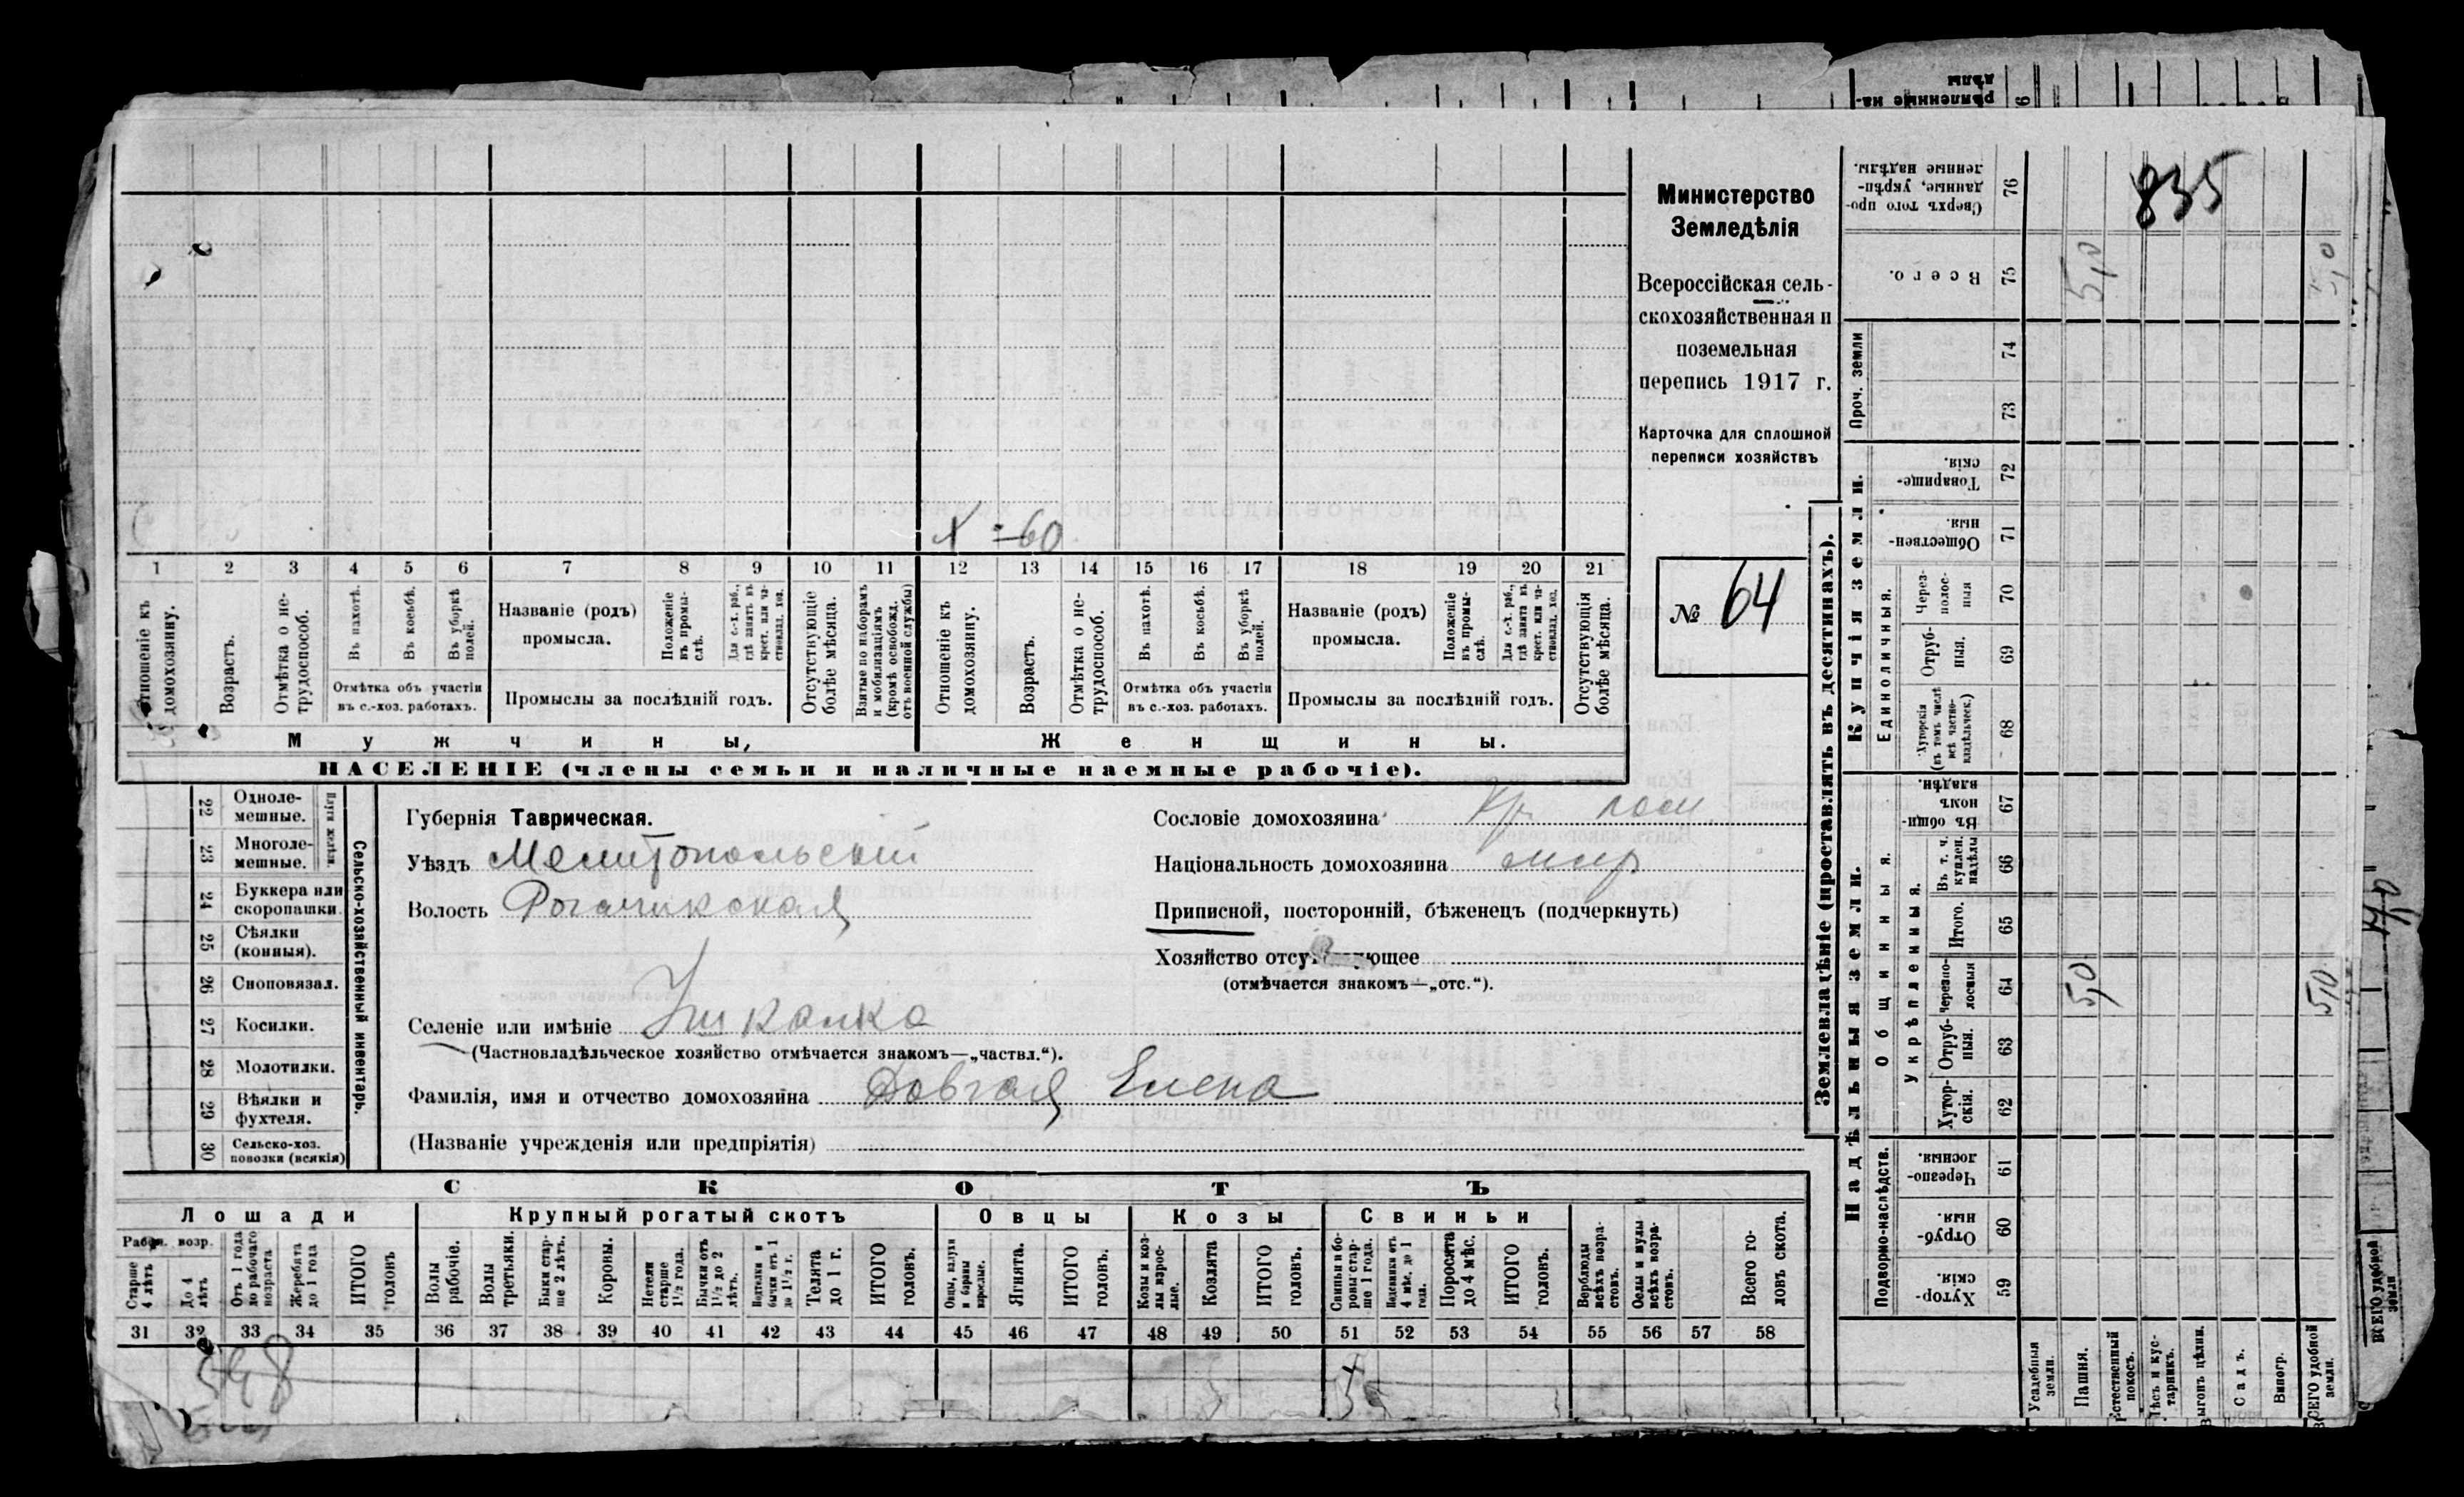 Министерство
Земледѣлія
Всероссійская сель-
скохозяйственная и
поземельная
перепись 1917 г.
Карточка для сплошной
переписи хозяйствъ
№ 64
Х - 60
1 2 3 4 5 6 7 8 9 10 11 12 13 14 15 16 17 18 19 20 21
Отношеніе къ домохозяину.
Возрастъ.
Отмѣтка о не-трудоспособ.
Въ пахотѣ.
Въ косьбѣ.
Въ уборкѣ полей.
Отмѣтка объ участіи
въ с.-хоз. работахъ.
Названіе (родъ)
промысла.
Положеніе въ промы-слѣ.
Для с.-х. раб., гдѣ занятъ въ крест. или ча-стновлад. хоз.
Промыслы за послѣдній годъ.
Отсутствующіе болѣе мѣсяца.
Взятые по наборамъ и мобилизаціямъ (кромѣ освобожд. отъ военной службы)
Отношеніе къ домохозяину.
Возрастъ.
Отмѣтка о не-трудоспособ.
Въ пахотѣ.
Въ косьбѣ.
Въ уборкѣ полей.
Отмѣтка объ участіи
въ с.-хоз. работахъ.
Названіе (родъ)
промысла.
Положеніе въ промы-слѣ.
Для с.-х. раб., гдѣ занята въ крест. или ча-стновлад. хоз.
Промыслы за послѣдній годъ.
Отсутствующія болѣе мѣсяца.
Мужчины,
Женщины.
НАСЕЛЕНІЕ (члены семьи и наличные наемные рабочіе).
22 Одноле-мешные.
23 Многоле-мешные.
24 Буккера или скоропашки.
25 Сѣялки (конныя).
26 Сноповязал.
27 Косилки.
28 Молотилки.
29 Вѣялки и фухтеля.
30 Сельско-хоз. повозки (всякія)
Сельско-хозяйственный инвентарь.
Губернія Таврическая.
Уѣздъ Мелитопольскій
Волость Рогачикская
Селеніе или имѣніе Ушкалка
(Частновладѣльческое хозяйство отмѣчается знакомъ—„частвл.“).
Фамилія, имя и отчество домохозяина Довгая Елена
(Названіе учрежденія или предпріятія)
Сословіе домохозяина Кр.
Національность домохозяина
Приписной, посторонній, бѣженецъ (подчеркнуть)
Хозяйство отсу ющее
(отмѣчается знакомъ—„отс.“).
СКОТЪ
Лошади
Крупный рогатый скотъ
Овцы
Козы
Свиньи
Рабоч. возр.
Старше 4 лѣтъ
До 4 лѣтъ
Отъ 1 года до рабочаго возраста
Жеребята до 1 года
ИТОГО головъ
Волы рабочіе.
Волы третьяки.
Быки стар-ше 2 лѣтъ.
Коровы.
Нетели старше 1½ года.
Бычки отъ 1½ до 2 лѣтъ.
Подтелки и бычки отъ 1 до 1½ г.
Телята до 1 г.
ИТОГО головъ.
Овцы, валухи и бараны взрослые.
Ягнята.
ИТОГО головъ.
Козы и коз-лы взрос-лые.
Козлята
ИТОГО головъ.
Свиньи и бо-ровы стар-ше 1 года.
Подсвинки отъ 4 мѣс. до 1 года.
Поросята до 4 мѣс.
ИТОГО головъ.
Верблюды всѣхъ возра-стовъ.
Ослы и мулы всѣхъ возра-стовъ.
Всего го-ловъ скота.
31 32 33 34 35 36 37 38 39 40 41 42 43 44 45 46 47 48 49 50 51 52 53 54 55 56 57 58
Землевладѣніе (проставлять въ десятинахъ).
Купчія земли.
Надѣльныя земли.
76 Сверхъ того про-данные, укрѣп-ленные надѣлы.
835
75 Всего.
5,0
5,0
Проч. земли
74
73
72 Товарище-скія.
71 Обществен-ныя.
Единоличныя.
70 Через-полос-ныя
69 Отруб-ныя.
68 Хуторскія (въ томъ числѣ всѣ частно-владѣльческ.)
Общинныя.
67 Въ общи-номъ владѣн.
Укрѣпленныя.
66 Въ т. ч. куплен. надѣлы
65 Итого.
64 Черезпо-лосныя
5,0
5,0
63 Отруб-ныя.
62 Хутор-скія.
Подворно-наслѣдств.
61 Черезпо-лосныя.
60 Отруб-ныя.
59 Хутор-скія.
Усадебныя земли.
Пашня.
Естественный покосъ.
Лѣсъ и кус-тарникъ.
Выгонъ цѣлин.
Садъ.
Виногр.
ВСЕГО удобной земли.
ВСЕГО удобной земли